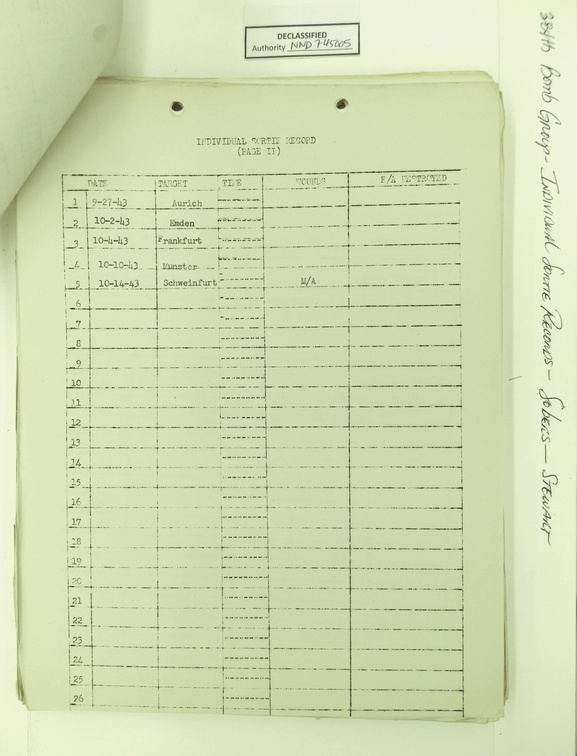 DECLASSIFIED
Authority NND 745005
384th Bomb Group - Individual Sortie Records - Sobers - Stewart
INDIVIDUAL SORTIE RECORD
(PAGE II)
DATE TARGET TIME WOUNDS E/A DESTROYED
1 9-27-43 Aurich
2 10-2-43 Emden
3 10-4-43 Frankfurt
4 10-10-43 Munster
5 10-14-43 Schweinfurt M/A
6
7
8
9
10
11
12
13
14
15
16
17
18
19
20
21
22
23
24
25
26